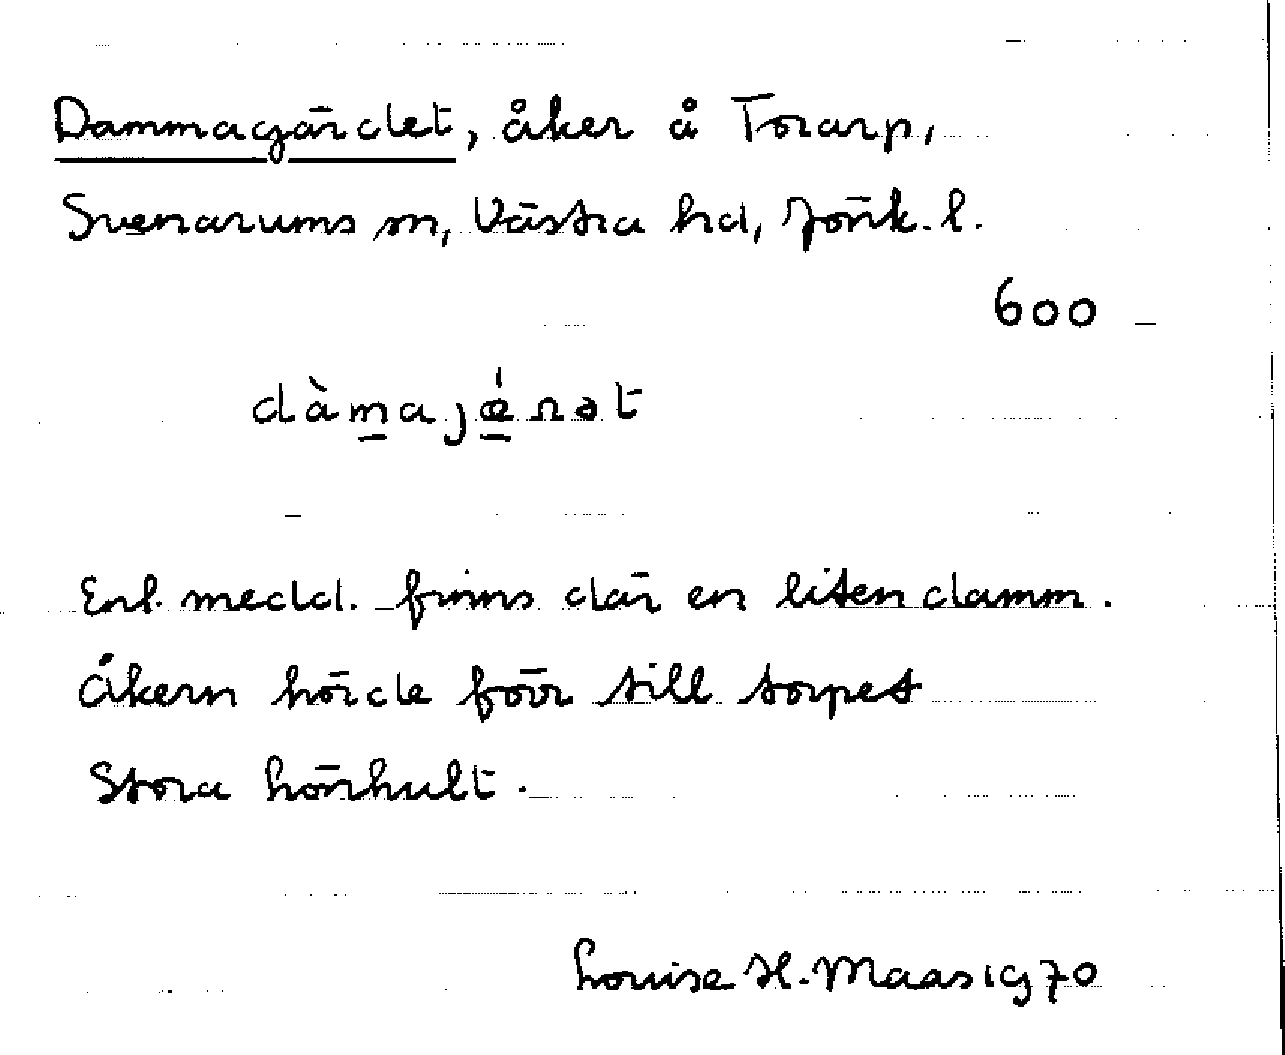 Dammagärdet, åker å Torarp,
Svenarums sn, Västra hd, Jönk. l.
600
dàmajǽnət
Enl. medd. finns där en liten damm.
Åkern hörde förr till torpet
Stora Lönhult.
Louise H. Maas 1970